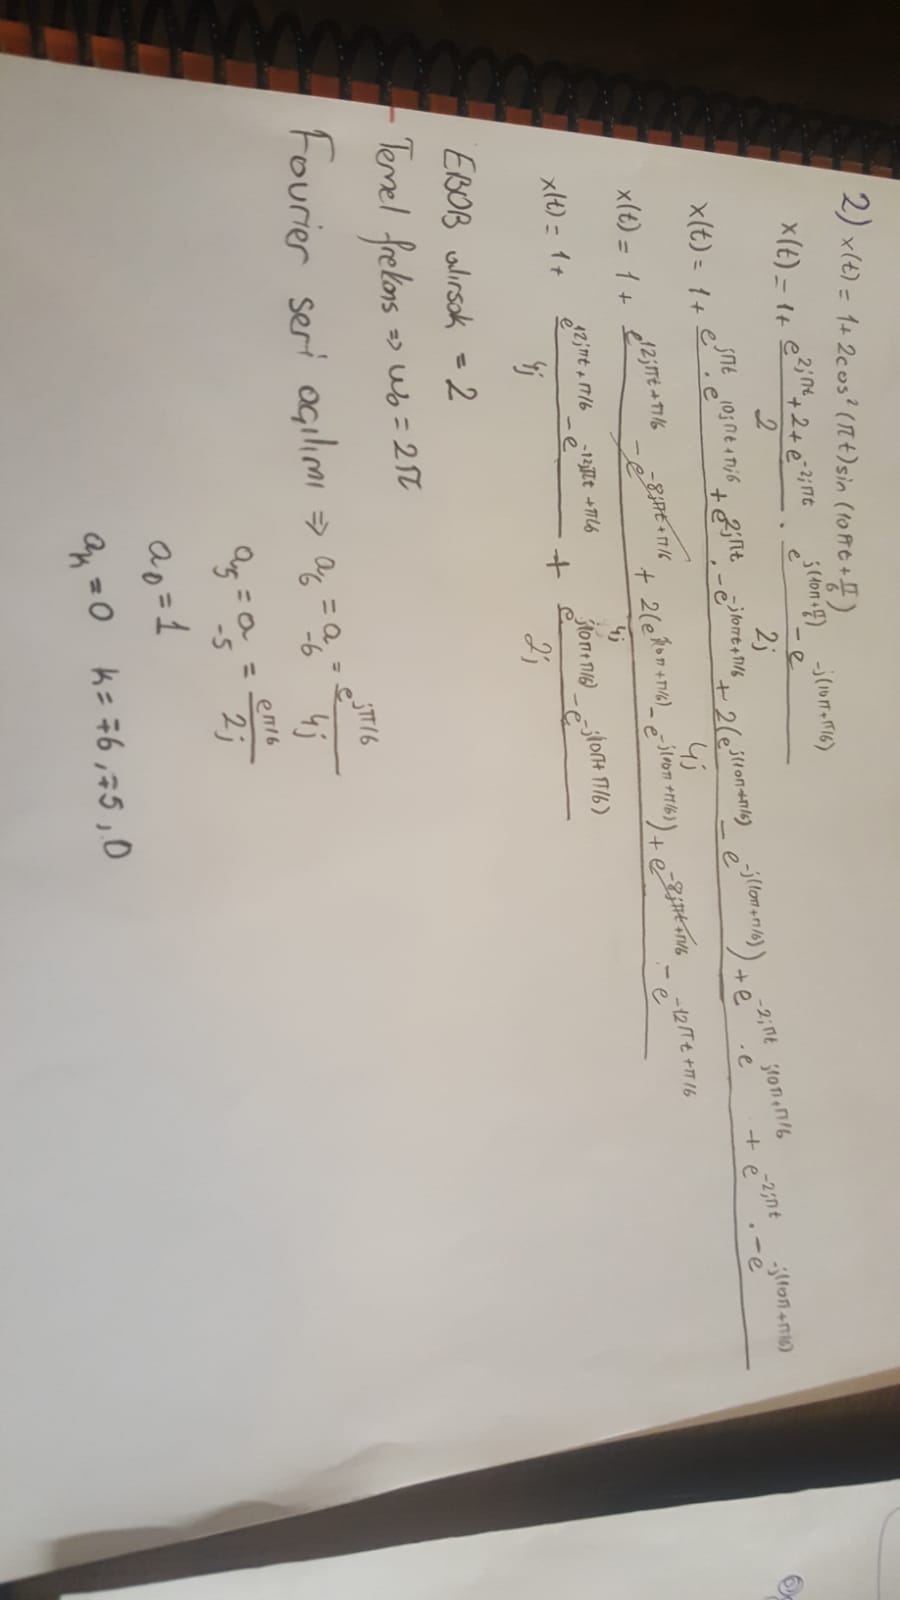 2) x(t) = 1+2cos²(πt)sin(10πt+π/6)
x(t) = 1+ (e^{2jπt} + 2 + e^{-2jπt})/2 . (e^{j(10π+π/6)} - e^{-j(10π+π/6)})/2j
x(t) = 1+ (e^{jπt} . e^{10jπt+π/6} + e^{2jπt} . -e^{-j10πt+π/6} + 2(e^{j(10π+π/6)} - e^{-j(10π+π/6)}) + e^{-2jπt} . e^{j10π+π/6} + e^{-2jπt} . -e^{-j(10π+π/6)})/4j
x(t) = 1+ (e^{12jπt+π/6} - e^{-8jπt+π/6} + 2(e^{j(10π+π/6)} - e^{-j(10π+π/6)}) + e^{-8jπt+π/6} - e^{-12πt+π/6})/4j
x(t) = 1+ (e^{12jπt+π/6} - e^{-12jπt+π/6})/4j + (e^{j(10π+π/6)} - e^{-j(10π+π/6)})/2j
EBOB alırsak = 2
Temel frekans => w₀ = 2π
Fourier seri açılımı => a₆ = a₋₆ = e^{jπ/6}/4j
a₅ = a₋₅ = e^{π/6}/2j
a₀ = 1
aₖ = 0 k = ∓6, ∓5, 0